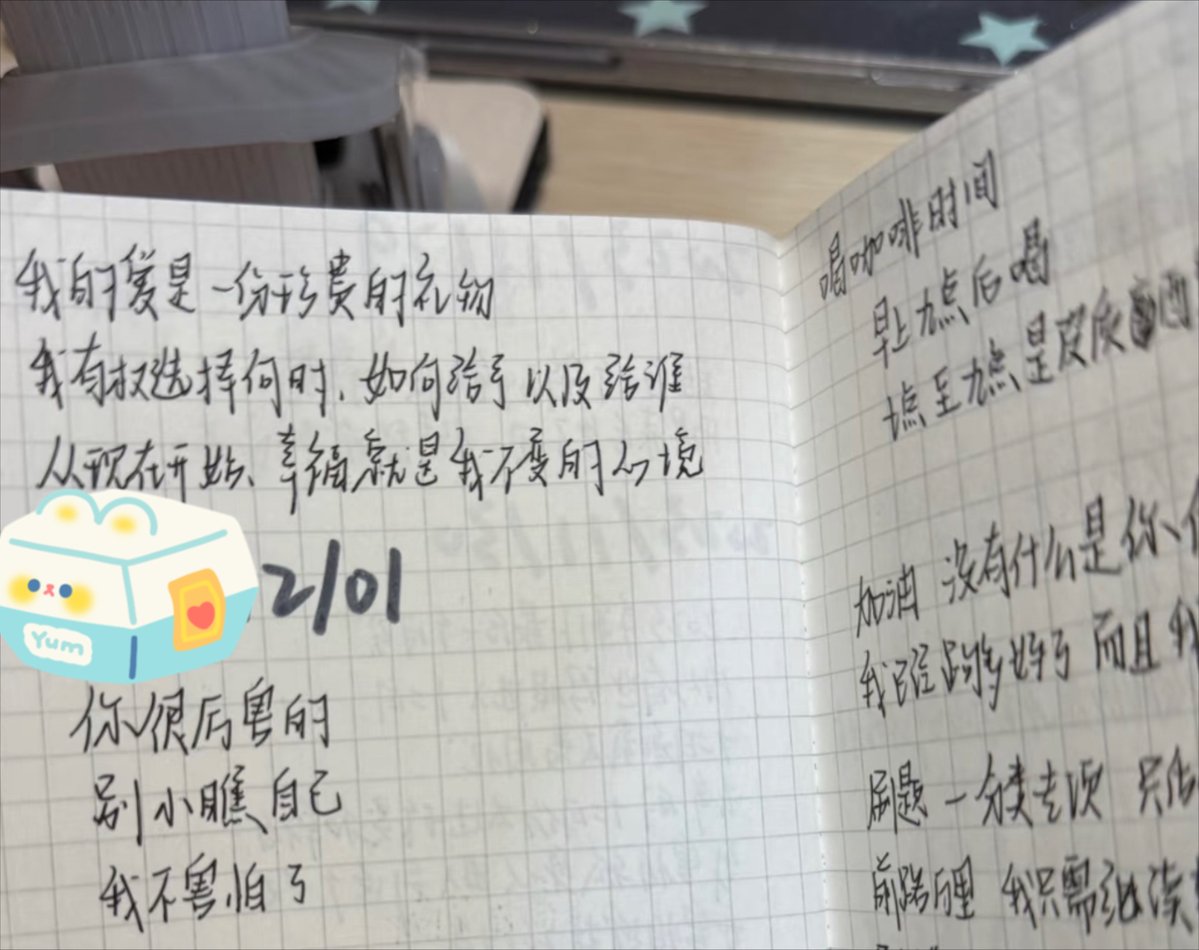 我的爱是一份珍贵的礼物
我有权选择何时、如何给予以及给谁
从现在开始、幸福就是我不变的心境
2/01
Yum
你很厉害的
别小瞧自己
我不害怕了
喝咖啡时间
早上九点后喝
七点至九点是皮质
加油 没有什么是你
我已经够好了 而且我
刷题 一分类专项 只
前路 我只需继续